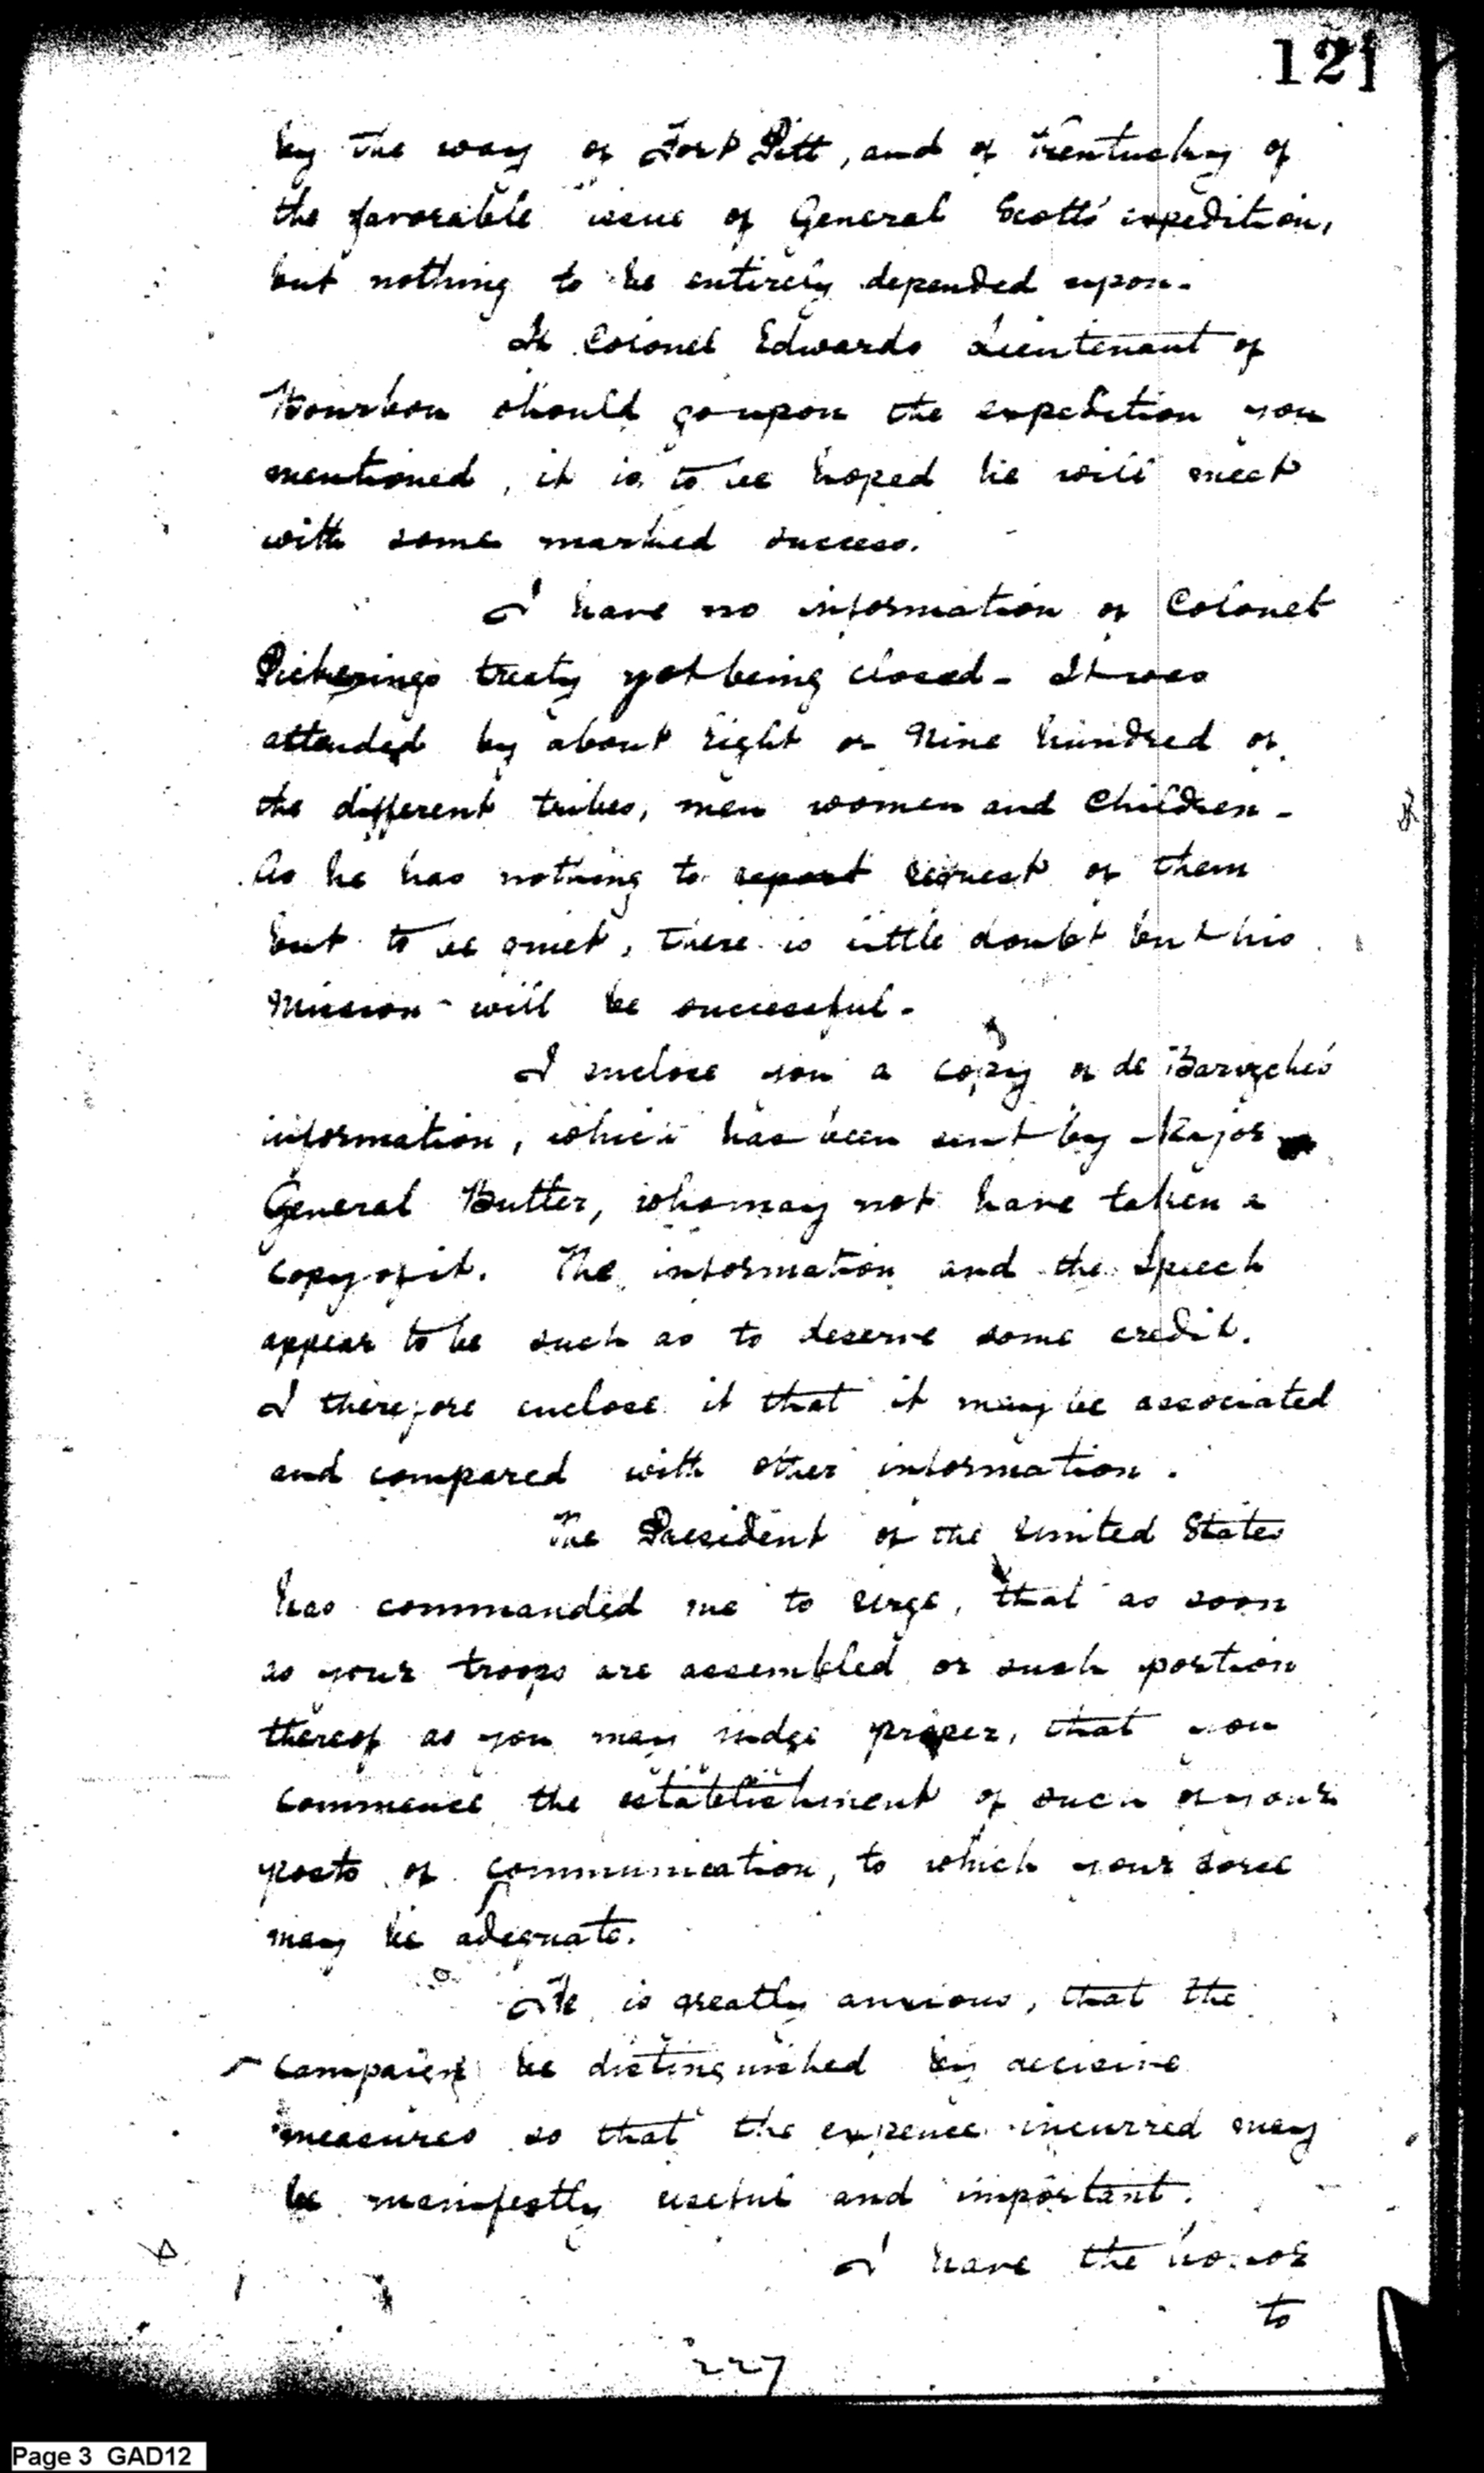 121
by the way of Fort Pitt, and of Kentucky of
the favorable issue of General Scotts' expedition,
but nothing to be entirely depended upon-
If Colonel Edwards Lieutenant of
Bourbon should go upon the expedition you
mentioned, it is to be hoped he will meet
with some marked success.
I have no information of Colonel
Pickerings treaty yet being closed- It was
attended by about eight or Nine hundred of
the different tribes, men women and Children-
As he has nothing to report request of them
but to be quiet, there is little doubt but his
Mission- will be successful-
I enclose you a copy of de
information, which has been sent by Major
General Butler, who may not have taken a
copy of it. The information and the Speech
appear to be such as to deserve some credit.
I therefore enclose it that it may be associated
and compared with other information.
The President of the United States
has commanded me to urge, that as soon
as your troops are assembled or such portion
thereof as you may judge proper, that you
commence the establishment of such of your
posts of communication, to which your force
may be adequate.
He is greatly anxious, that the
Campaign be distinguished by decisive
measures so that the expence incurred may
be manifestly useful and important.
I have the honor
to
227
Page 3 GAD12